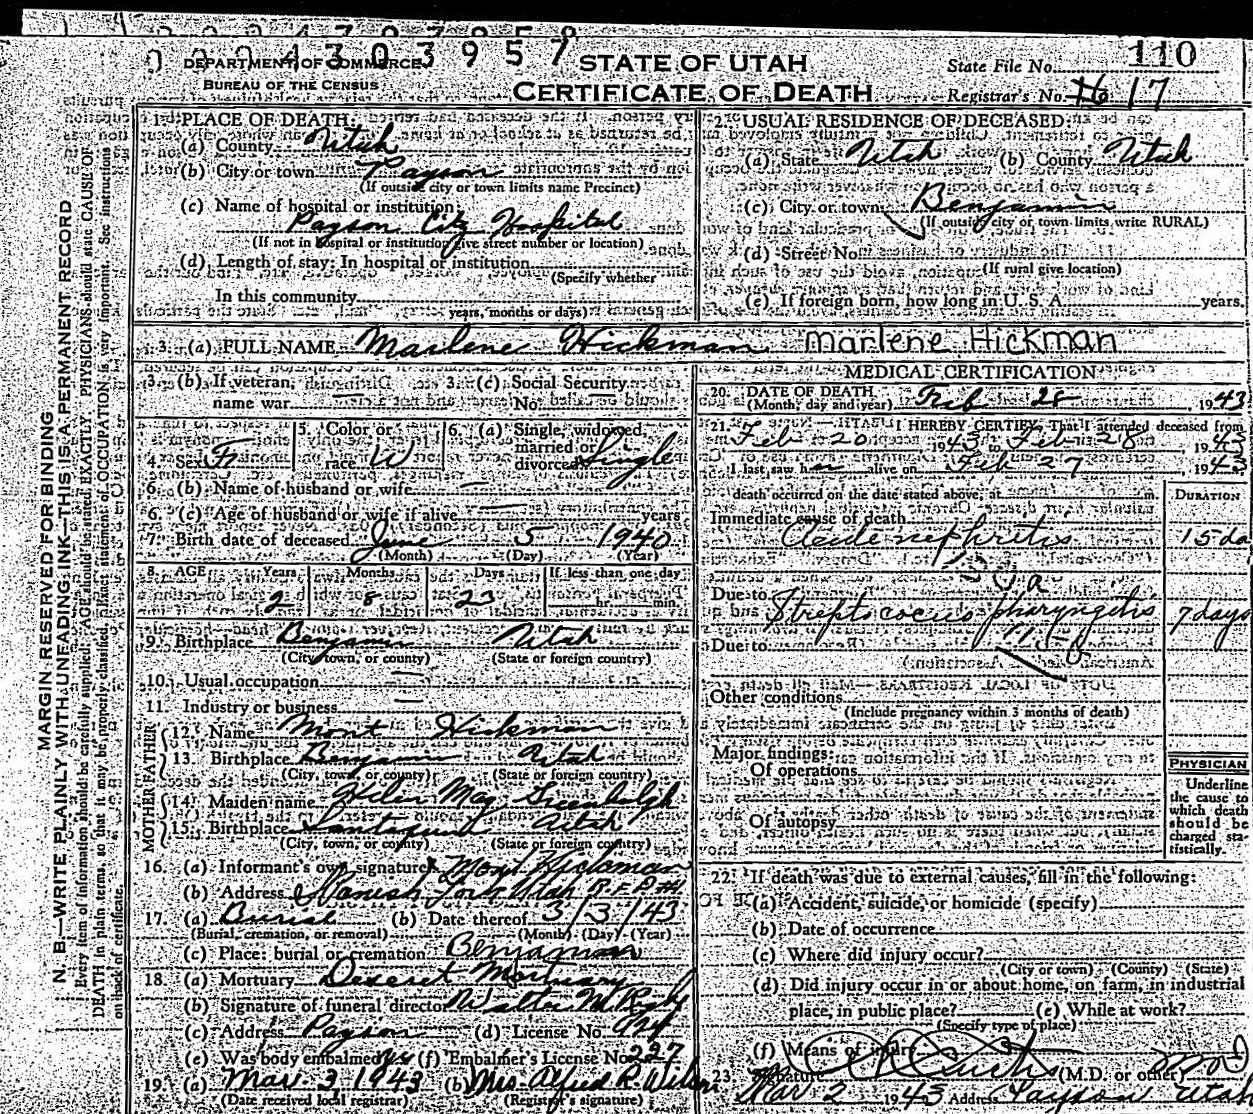 0 0 0 4 3 0 3 9 5 7
110
DEPARTMENT OF COMMERCE
BUREAU OF THE CENSUS
STATE OF UTAH
CERTIFICATE OF DEATH
State File No.
Registrar's No. 17
PLACE OF DEATH:
(a) County Utah
(b) City or town Payson
(If outside city or town limits name Precinct)
(c) Name of hospital or institution:
Payson City Hospital
(If not in hospital or institution give street number or location)
(d) Length of stay: In hospital or institution
(Specify whether
In this community
years, months or days)
2. USUAL RESIDENCE OF DECEASED:
(a) State Utah (b) County Utah
(c) City or town Benjamin
(If outside city or town limits, write RURAL)
(d) Street No.
(If rural give location)
(e) If foreign born, how long in U. S. A. years.
3. (a) FULL NAME Marlene Hickman Marlene Hickman
3. (b) If veteran, name war 3. (c) Social Security No.
4. Sex F 5. Color or race W 6. (a) Single, widowed, married or divorced Single
6. (b) Name of husband or wife
6. (c) Age of husband or wife if alive years
7. Birth date of deceased June 5 1940
(Month) (Day) (Year)
8. AGE Years Months Days If less than one day
2 8 23 hr. min.
9. Birthplace Benjamin Utah
(City, town, or county) (State or foreign country)
10. Usual occupation
11. Industry or business
FATHER
12. Name Mont Hickman
13. Birthplace Benjamin Utah
(City, town, or county) (State or foreign country)
MOTHER
14. Maiden name May Greenhalgh
15. Birthplace Santaquin Utah
(City, town, or county) (State or foreign country)
16. (a) Informant's own signature Mont Hickman
(b) Address Spanish Fork Utah R.F.D. #1
17. (a) Burial (b) Date thereof 3/3/43
(Burial, cremation, or removal) (Month) (Day) (Year)
(c) Place: burial or cremation Benjamin
18. (a) Mortuary Deseret Mortuary
(b) Signature of funeral director Walter M. Rigby
(c) Address Payson (d) License No.
(e) Was body embalmed Yes (f) Embalmer's License No. 227
19. (a) Mar. 3 1943 (b) Mrs. Alfred R. Wilson
(Date received local registrar) (Registrar's signature)
MEDICAL CERTIFICATION
20. DATE OF DEATH
(Month, day and year) Feb 28, 1943
21. I HEREBY CERTIFY, That I attended deceased from
Feb 20 1943 to Feb 28, 1943
I last saw her alive on Feb 27, 1943
death occurred on the date stated above, at m.
DURATION
Immediate cause of death
Acute nephritis 15 da
130a
Due to
Streptococcus pharyngitis 7 days
115-b
Due to
Other conditions
(Include pregnancy within 3 months of death)
Major findings:
Of operations
Of autopsy
PHYSICIAN
Underline
the cause to
which death
should be
charged sta-
tistically.
22. If death was due to external causes, fill in the following:
(a) Accident, suicide, or homicide (specify)
(b) Date of occurrence
(c) Where did injury occur?
(City or town) (County) (State)
(d) Did injury occur in or about home, on farm, in industrial
place, in public place? (e) While at work?
(Specify type of place)
(f) Means of injury
23. Signature (M.D. or other) MD
Mar 2 1943 Address Payson Utah
MARGIN RESERVED FOR BINDING
N. B.—WRITE PLAINLY WITH UNFADING INK—THIS IS A PERMANENT RECORD
Every item of information should be carefully supplied. AGE should be stated EXACTLY. PHYSICIANS should state CAUSE OF
DEATH in plain terms, so that it may be properly classified. Exact statement of OCCUPATION is very important. See instructions
on back of certificate.